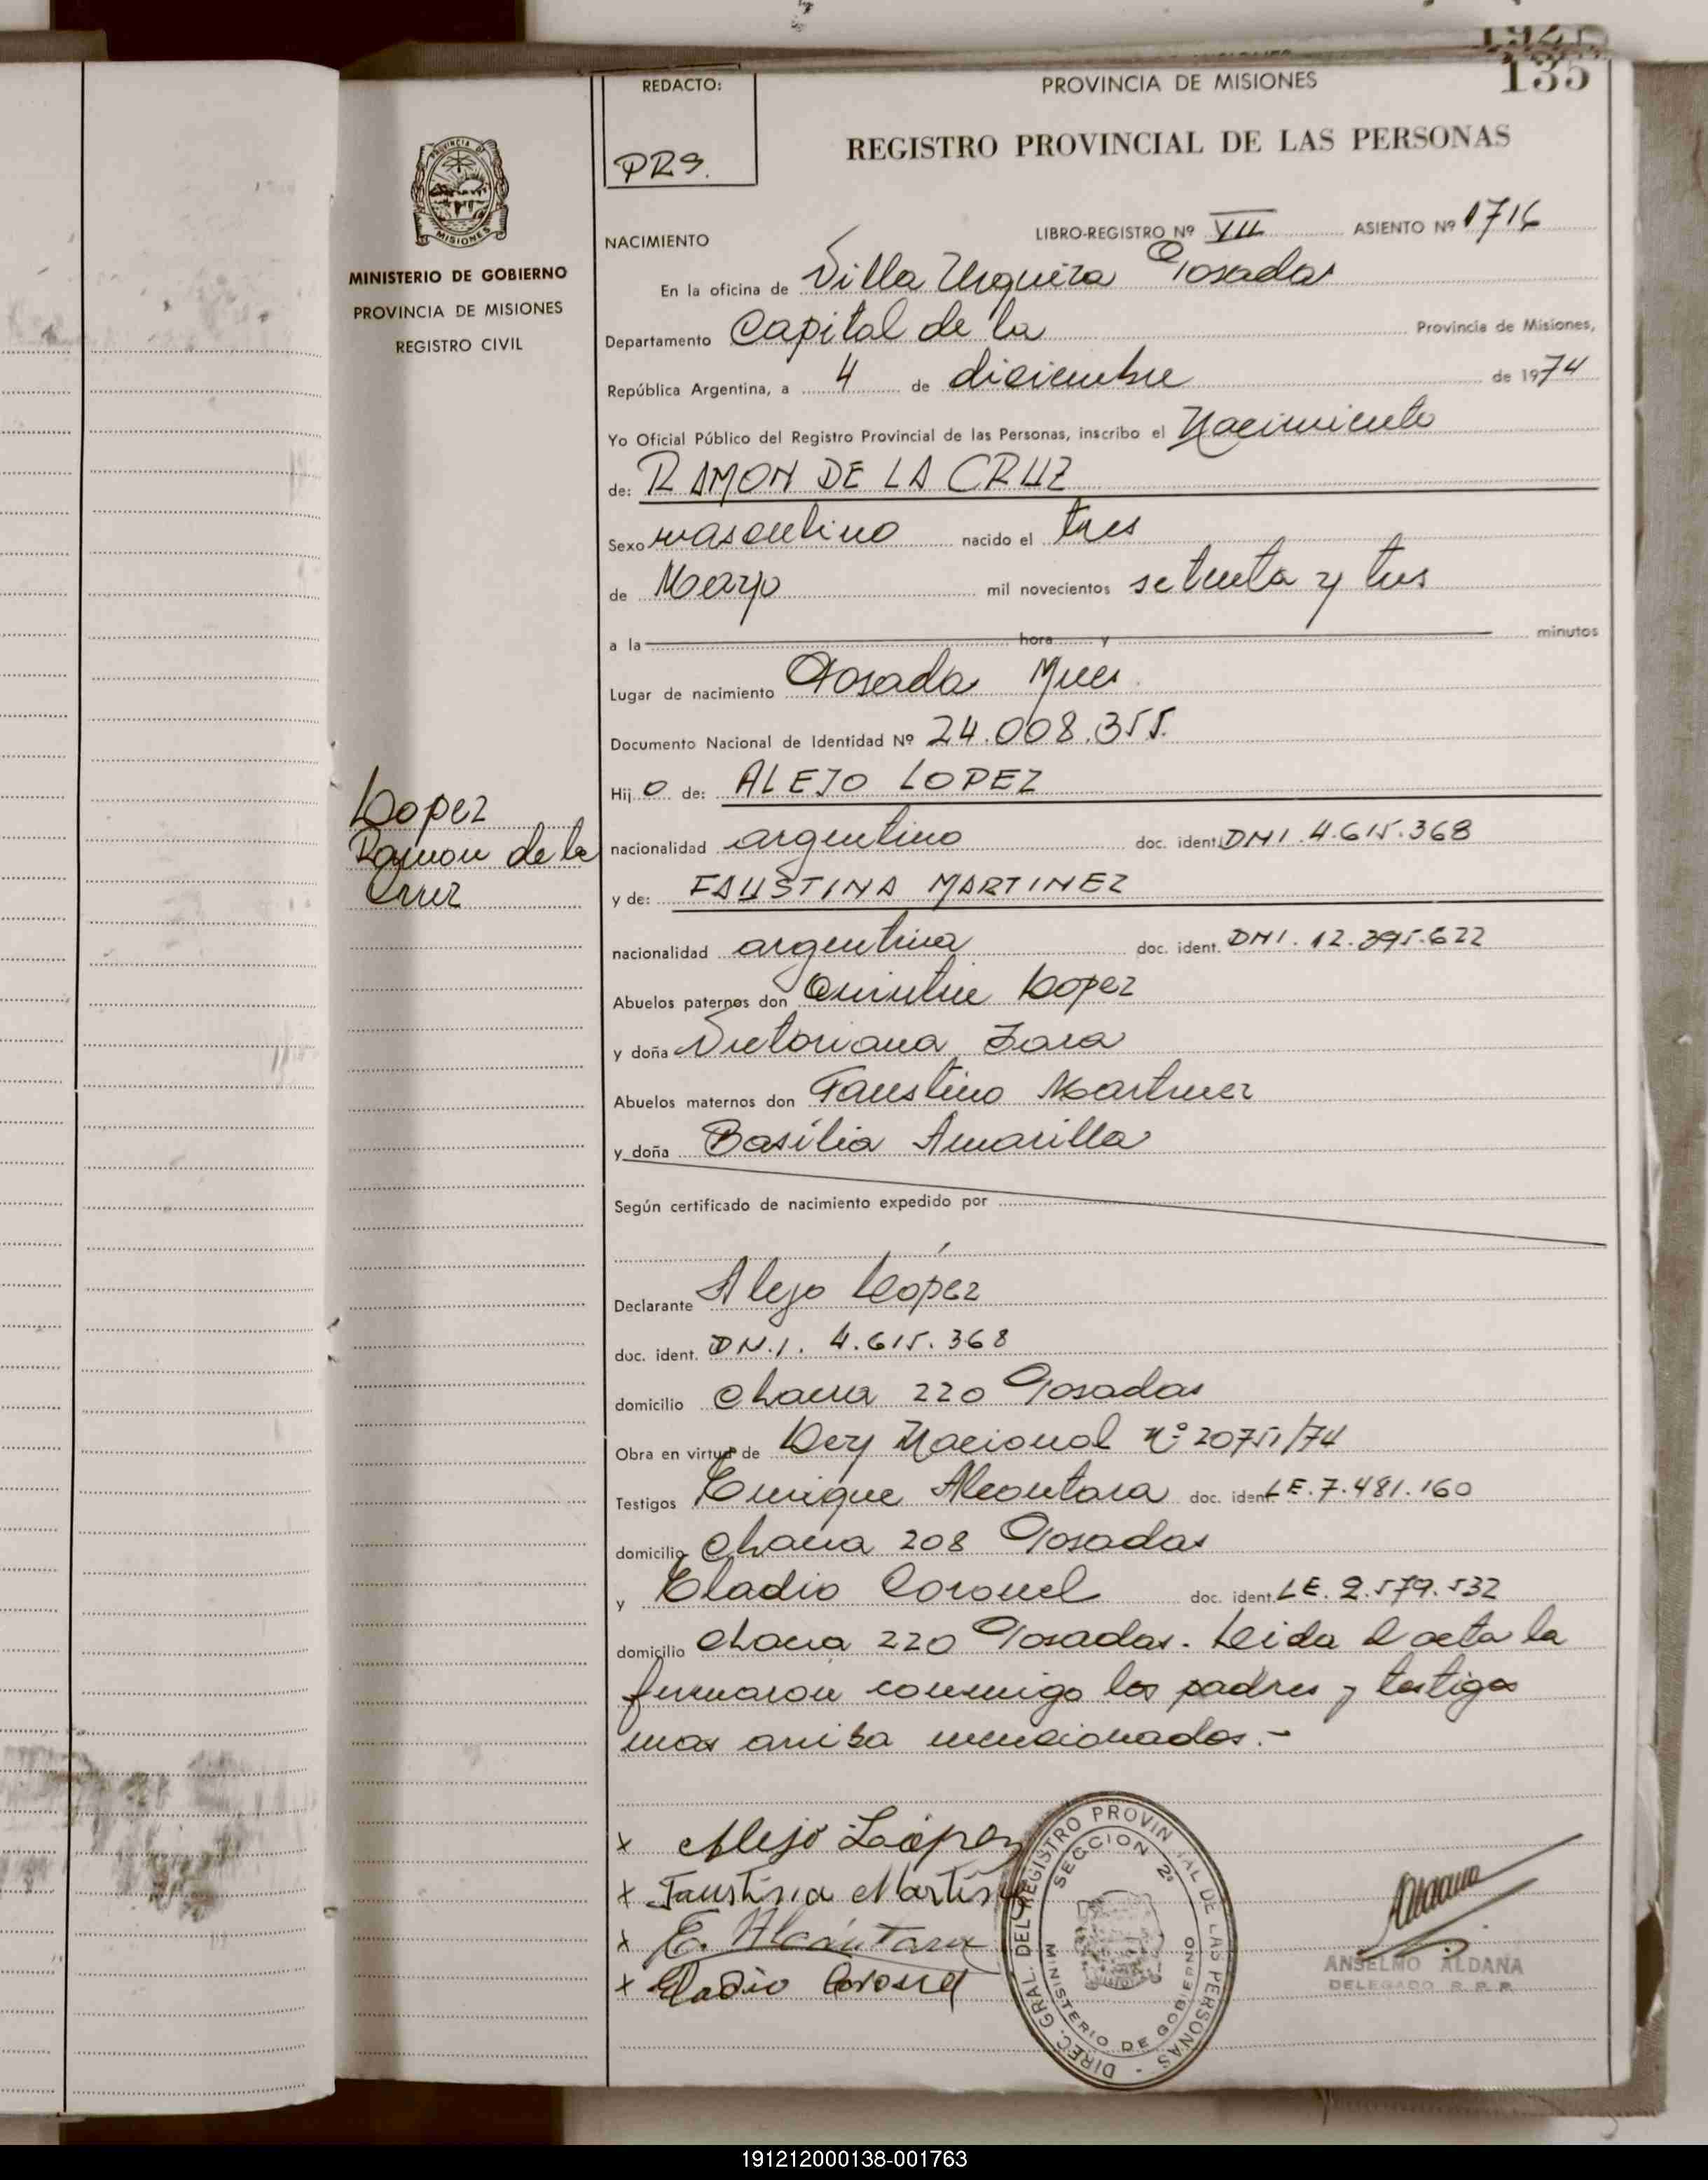 135
REDACTO:
PRS.
PROVINCIA DE MISIONES
REGISTRO PROVINCIAL DE LAS PERSONAS
MISIONES
MINISTERIO DE GOBIERNO
PROVINCIA DE MISIONES
REGISTRO CIVIL
NACIMIENTO LIBRO-REGISTRO Nº VII ASIENTO Nº 1716
En la oficina de Villa Urquiza Posadas
Departamento Capital de la Provincia de Misiones,
República Argentina, a 4 de diciembre de 1974
Yo Oficial Público del Registro Provincial de las Personas, inscribo el Nacimiento
de: RAMON DE LA CRUZ
Sexo masculino nacido el tres
de Mayo mil novecientos setenta y tres
a la hora y minutos
Lugar de nacimiento Posadas
Documento Nacional de Identidad Nº 24.008.355.
Hijo de: ALEJO LOPEZ
Lopez
Ramon de la
Cruz
nacionalidad argentino doc. ident. DNI. 4.615.368
y de: FAUSTINA MARTINEZ
nacionalidad argentina doc. ident. DNI. 12.395.622
Abuelos paternos don Lopez
y doña Victoriana
Abuelos maternos don Faustino Martinez
y doña Basilia Amarilla
Según certificado de nacimiento expedido por
Declarante Alejo Lopez
doc. ident. DN.I. 4.615.368
domicilio Chacra 220 Posadas
Obra en virtud de Ley Nacional Nº 20751/74
Testigos Enrique Alcantara doc. ident. LE. 7.481.160
domicilio Chacra 208 Posadas
y Eladio Coronel doc. ident. LE. 2.579.532
domicilio Chacra 220 Posadas. Leida el acta la
firmaron conmigo los padres y testigos
mas arriba mencionados.-
x Alejo López
x Faustina Martines
x E. Alcántara
x Eladio Coronel
DIREC. GRAL. DEL REGISTRO PROVINCIAL DE LAS PERSONAS -
SECCION 2º
MINISTERIO DE GOBIERNO
ANSELMO ALDANA
DELEGADO R. P. P.
191212000138-001763